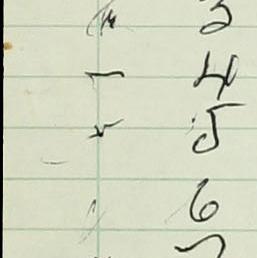 3
— 4
5
6
7